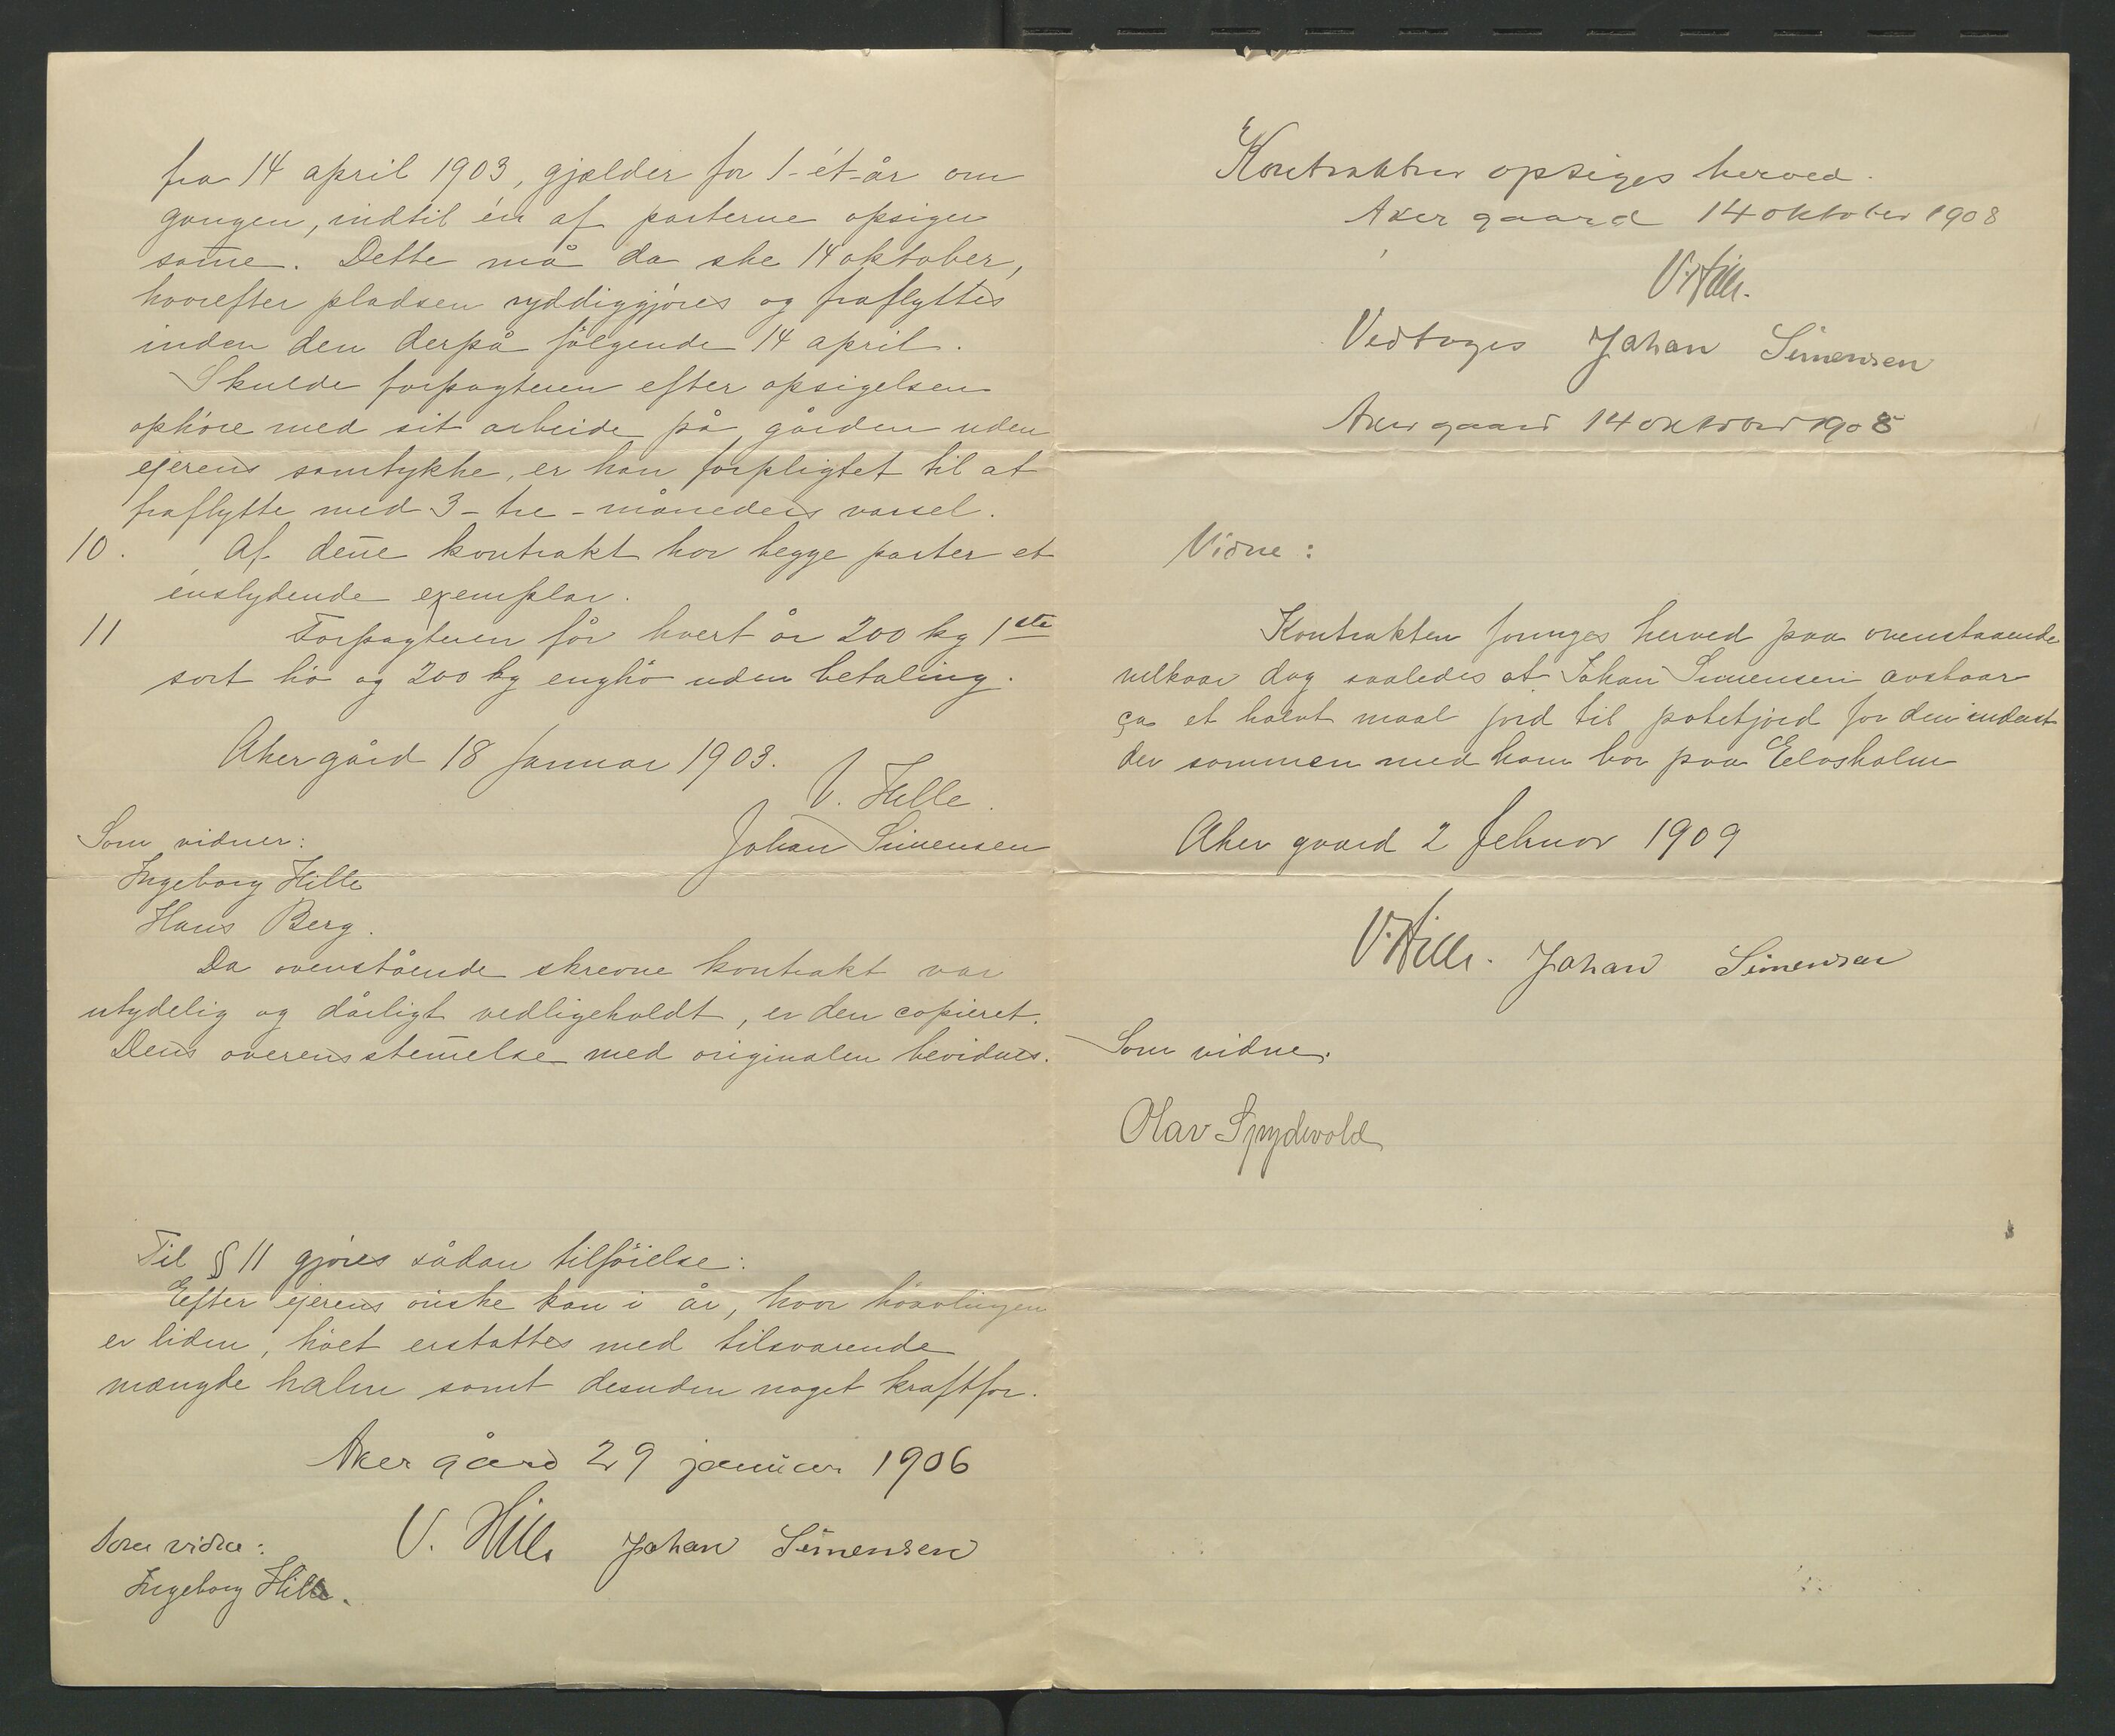 fra 14 april 1903, gjælder for 1-ét-år om
gangen, indtil én af parterne opsiger
sam̄e. Dette må da ske 14 oktober,
hvorefter pladsen ryddiggjøres og fraflyttes
inden den derpå følgende 14 april.
Skulde forpagteren efter opsigelsen
ophøre med sit arbeide på gården uden
ejerens samtykke, er han forpligtet til at
fraflytte med 3-tre-måneders varsel.
10. Af den̄e kontrakt har begge parter et
enslydende exemplar.
11 Forpagteren får hvert år 200 kg 1ste
sort hø og 200 kg enghø uden betaling.
Aker gård 18 Januar 1903.
V. Hille.
Johan Simensen
Som vidner:
Ingeborg Hille
Hans Berg.
Da ovenstående skrevne kontrakt var
utydelig og dårligt vedligeholdt, er den copieret.
Dens overensstem̄else med originalen bevidnes.
Til § 11 gjøres sådan tilføielse:
Efter ejerens ønske kan i år, hvor høavlingen
er liden, høet erstattes med tilsvarende
mængde halm samt desuden noget kraftfor.
Aker gård 29 januar 1906
V. Hille Johan Simensen
Som vidne:
Ingeborg Hille.
Kontrakten opsiges herved.
Aker gaard 14 oktober 1908
V. Hille.
Vedtages Johan Simensen
Aker gaard 14 oktober 1908
Vidne:
Kontrakten fornyes herved paa ovenstaaende
vilkaar dog saaledes at Johan Simensen avstaar
ca et halvt maal jord til potetjord for den inderst
der sammen med ham bor paa Elvsholm
Aker gaard 2 februar 1909
V. Hille. Johan Simensen
Som vidne.
Olav Spydevold